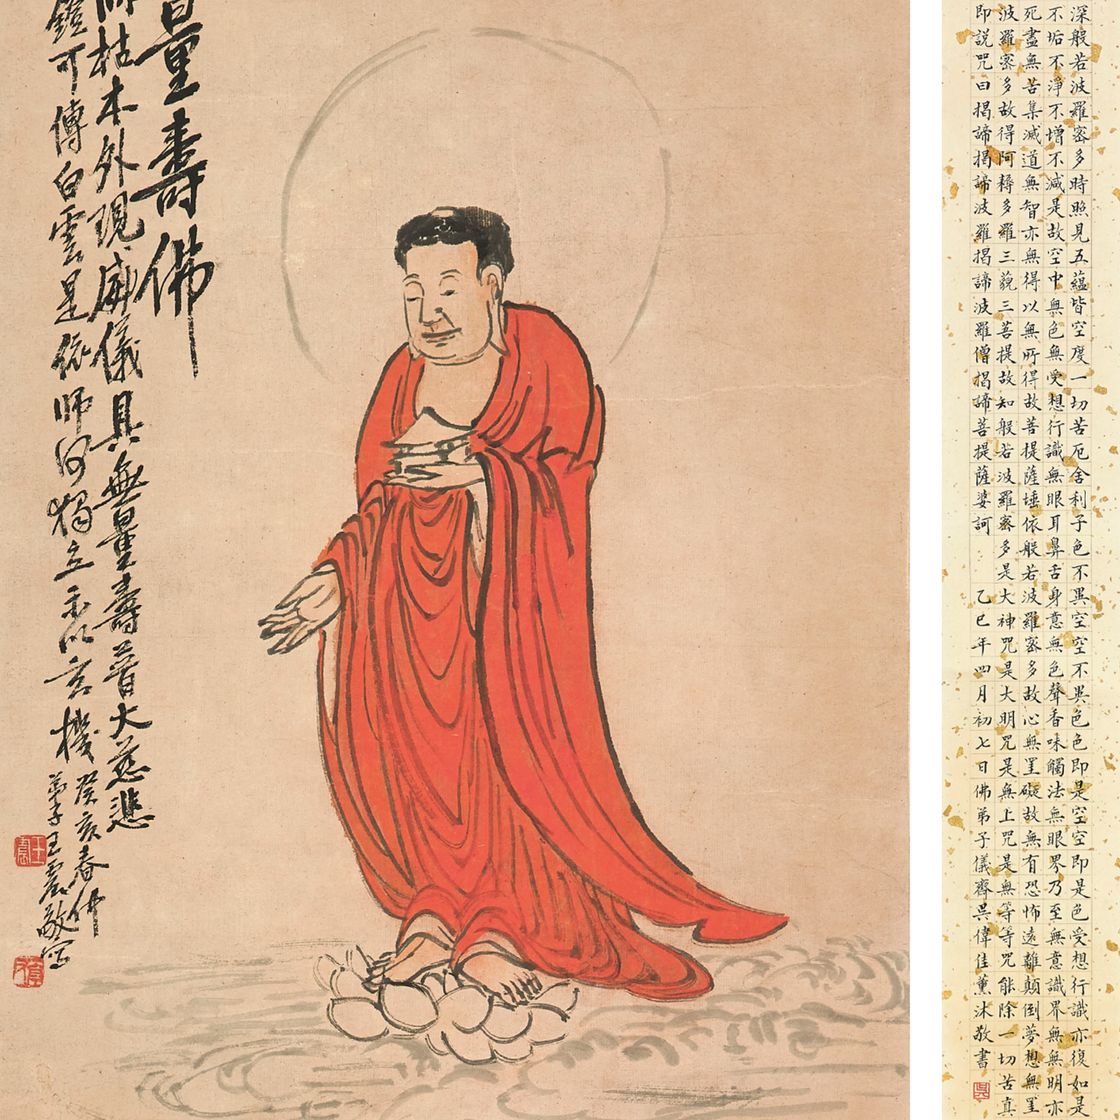 深般若波羅密多時照見五蘊皆空度一切苦厄舍利子色不異空空不異色色即是空空即是色受想行識亦復如是
不垢不淨不增不減是故空中無色無受想行識無眼耳鼻舌身意無色聲香味觸法無眼界乃至無意識界無無明亦
死盡無苦集滅道無智亦無得以無所得故菩提薩埵依般若波羅密多故心無罣礙故無有恐怖遠離顛倒夢想無罣
波羅密多故得阿耨多羅三藐三菩提故知般若波羅密多是大神咒是大明咒是無上咒是無等等咒能除一切苦真
即說咒曰揭諦揭諦波羅揭諦波羅僧揭諦菩提薩婆訶 乙巳年四月初七日佛弟子儀齊吳偉佳薰沐敬書
量壽佛
枯木外現威儀具無量壽普大慈悲
鐙可傳白雲是依師何獨立玄機
癸亥春佛
弟子王震敬寫